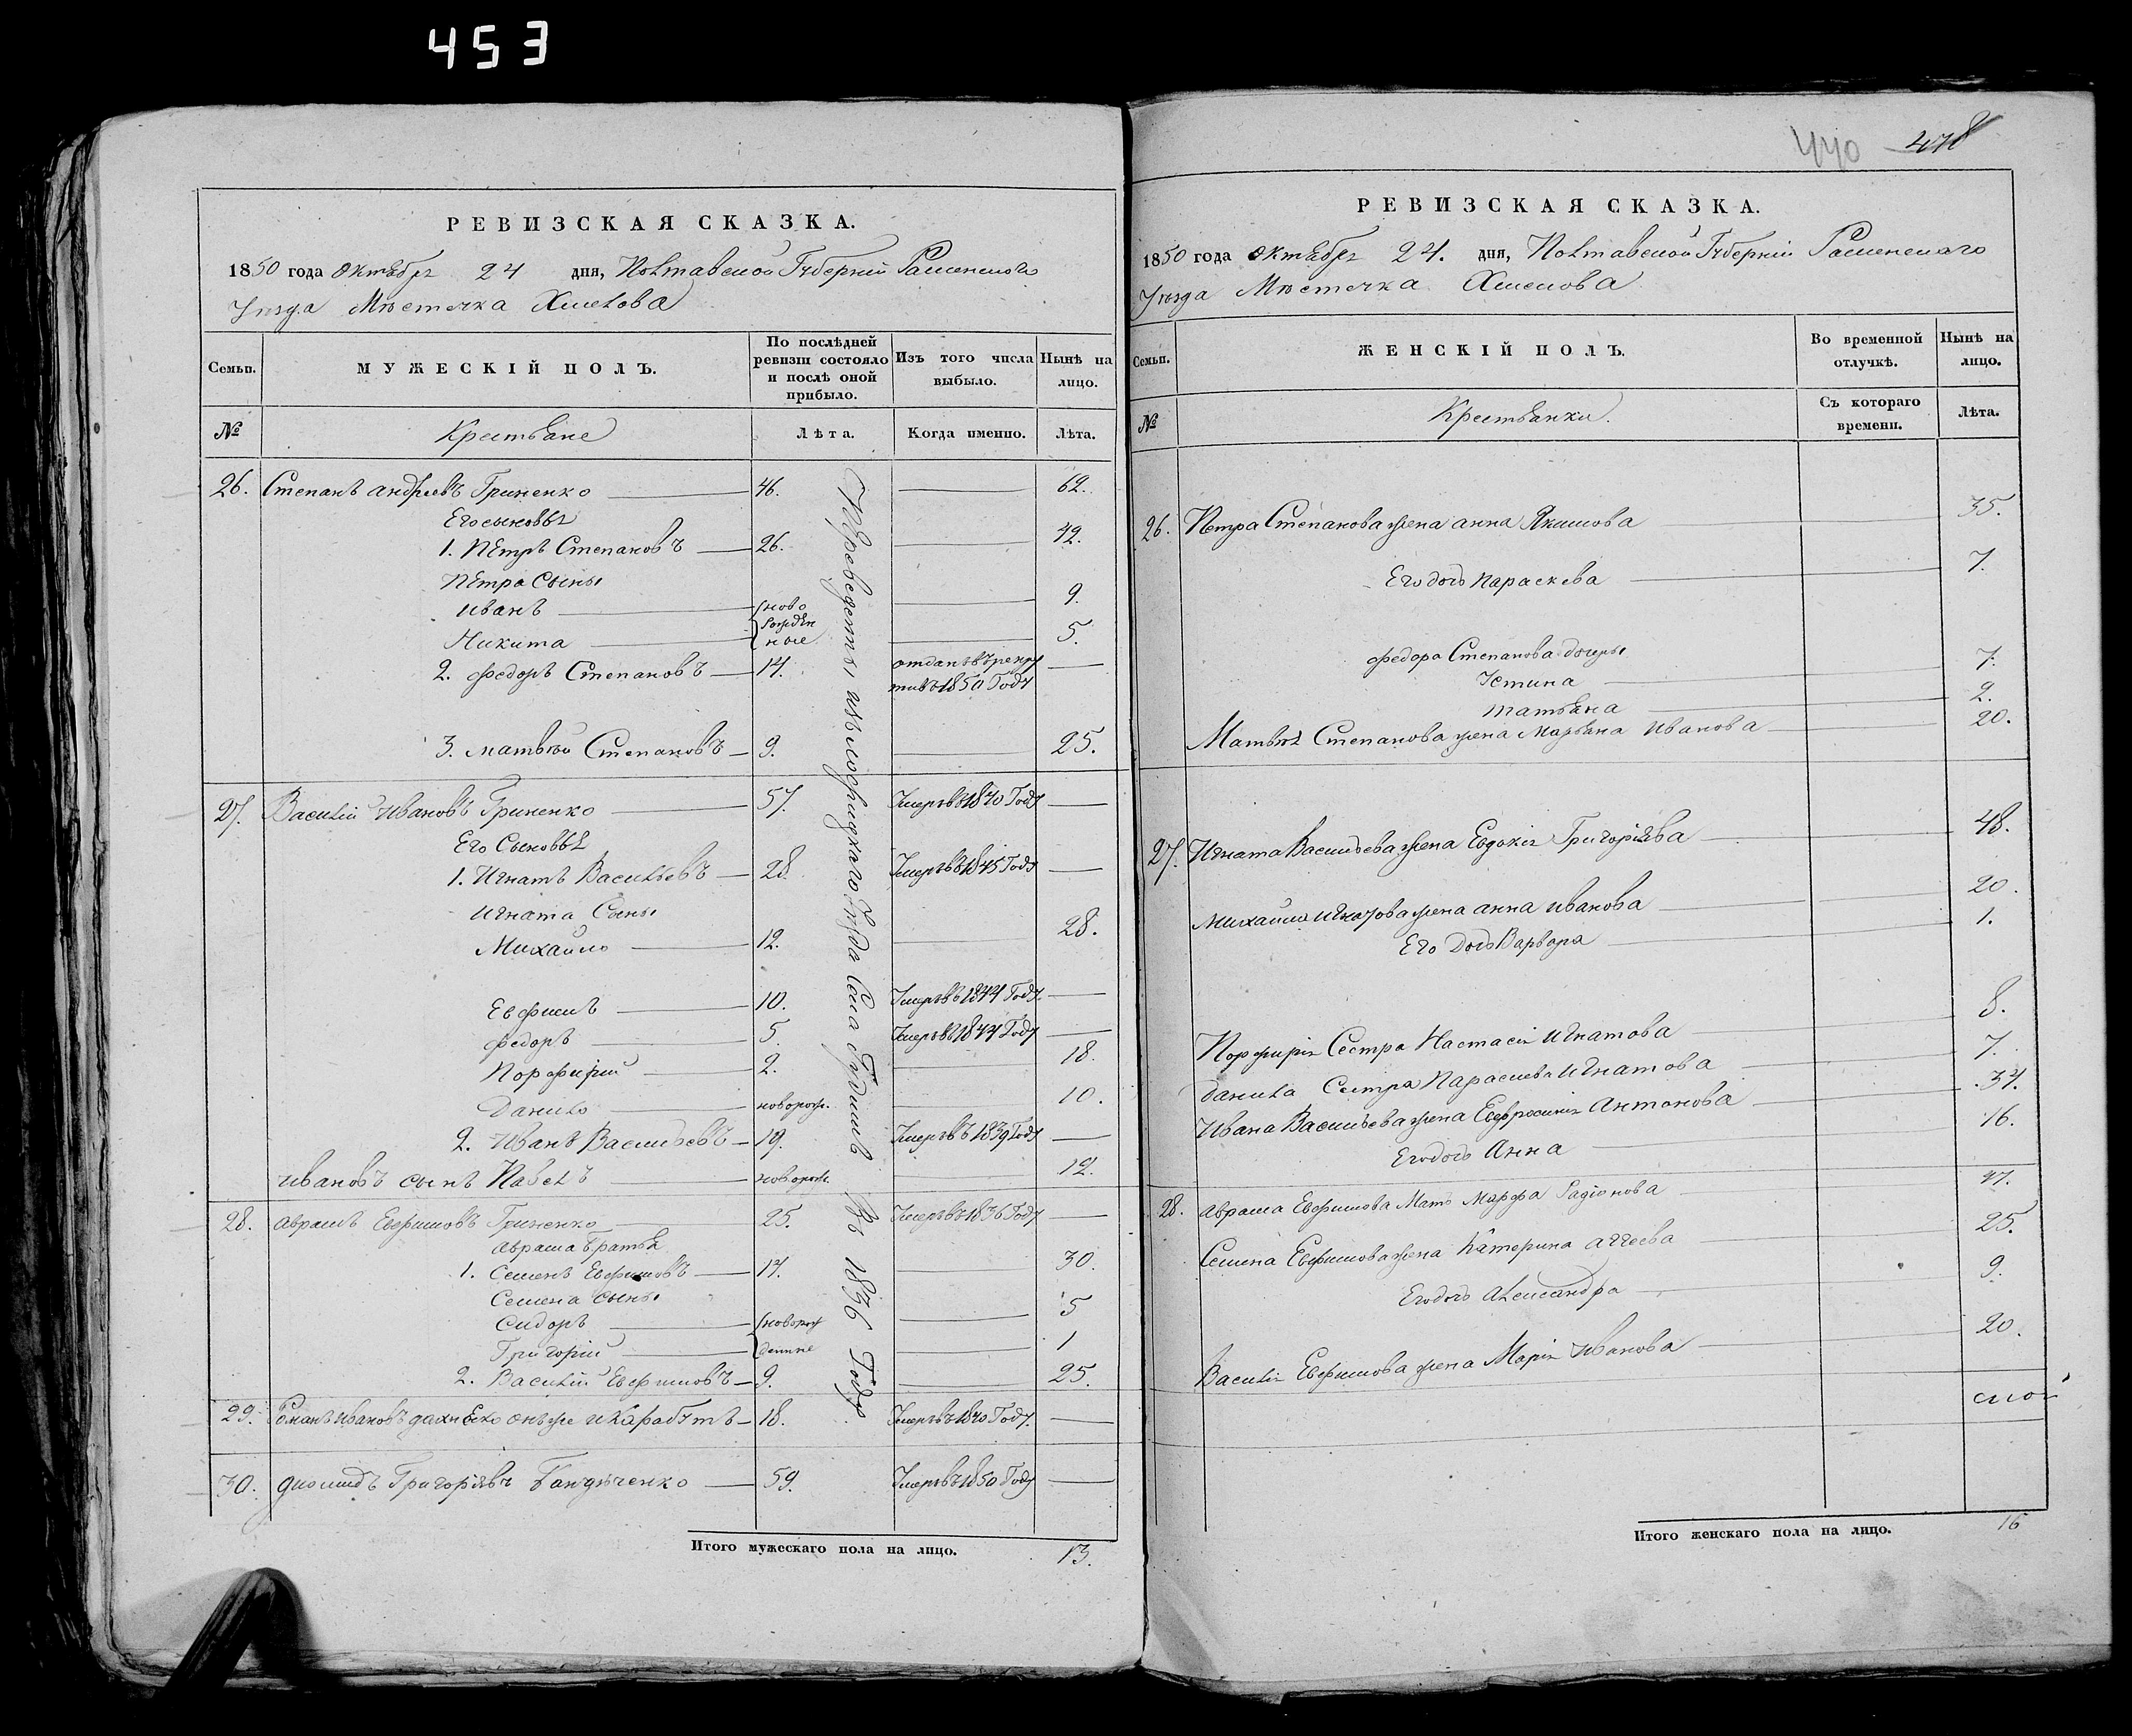 453
РЕВИЗСКАЯ СКАЗКА.
1850 года Октября 24 дня, Полтавской Губерніи Роменскаго
Уѣзда Мѣстечка Хмелова
Семьи. МУЖЕСКІЙ ПОЛЪ. По послѣдней ревизіи состояло и послѣ оной прибыло. Изъ того числа выбыло. Нынѣ на лицо.
№ Крестьяне Лѣта. Когда именно. Лѣта.
26. Степанъ Андреевъ Гриненко 46. 62.
Его сыновья
1. Петръ Степановъ 26. 42.
Петра Сыны
Иванъ ново 9.
Никита рожден ные 5.
2. Федоръ Степановъ 14. отданъ въ рекруты въ 1850 Году
3. Матвѣй Степановъ 9. 25.
27. Василій Ивановъ Гриненко 57. Умеръ въ 1840 Году
Его Сыновья
1. Игнатъ Васильевъ 28. Умеръ въ 1845 Году
Игната Сыны
Михайло 12. 28.
Евфимъ 10. Умеръ въ 1844 Году
Федоръ 5. Умеръ въ 1844 Году
Порфирій 2. 18.
Данило новорож. 10.
2. Иванъ Васильевъ 19. Умеръ въ 1839 Году
Ивановъ сынъ Павелъ новорож. 12.
28. Аврамъ Евфимовъ Гриненко 25. Умеръ въ 1836 Году
Аврама Братья
1. Семенъ Евфимовъ 14. 30.
Семена сыны
Сидоръ новорож 5
Григорій денные 1
2. Василій Евфимовъ 9. 25.
29. Романъ Ивановъ онъ же и Карабутъ 18. Умеръ въ 1840 Году.
30. Диомидъ Григорьевъ 59. Умеръ въ 1850 Году
Переведены изъ Уѣзда Села въ 1836 Году
Итого мужескаго пола на лицо. 13.
440 478
РЕВИЗСКАЯ СКАЗКА.
1850 года Октября 24. дня, Полтавской Губерніи Роменскаго
Уѣзда Мѣстечка Хмелова
Семьи. ЖЕНСКІЙ ПОЛЪ. Во временной отлучкѣ. Нынѣ на лицо.
№ Крестьянки. Съ котораго времени. Лѣта.
26. Петра Степанова жена Анна Якимова 35.
Его дочь Параскева 7.
Федора Степанова дочеры
Устина 7.
Татьяна 2.
Матвѣя Степанова жена Марьяна Иванова 20.
27. Игната Васильева жена Евдокія Григорьева 48.
Михайла Игнатова жена Анна Иванова 20.
Его Дочь Варвара 1.
Порфирія Сестра Настасія Игнатова 8.
Данила Сестра Параскева Игнатова 7.
Ивана Васильева жена Евфросинія Антонова 34.
Его дочь Анна 16.
28. Аврама Евфимова Мать Марфа Радіонова 47.
Семена Евфимова жена Катерина Аггеева 25.
Его дочь Александра 9.
Василія Евфимова жена Марія Иванова 20.
Итого женскаго пола на лицо. 16